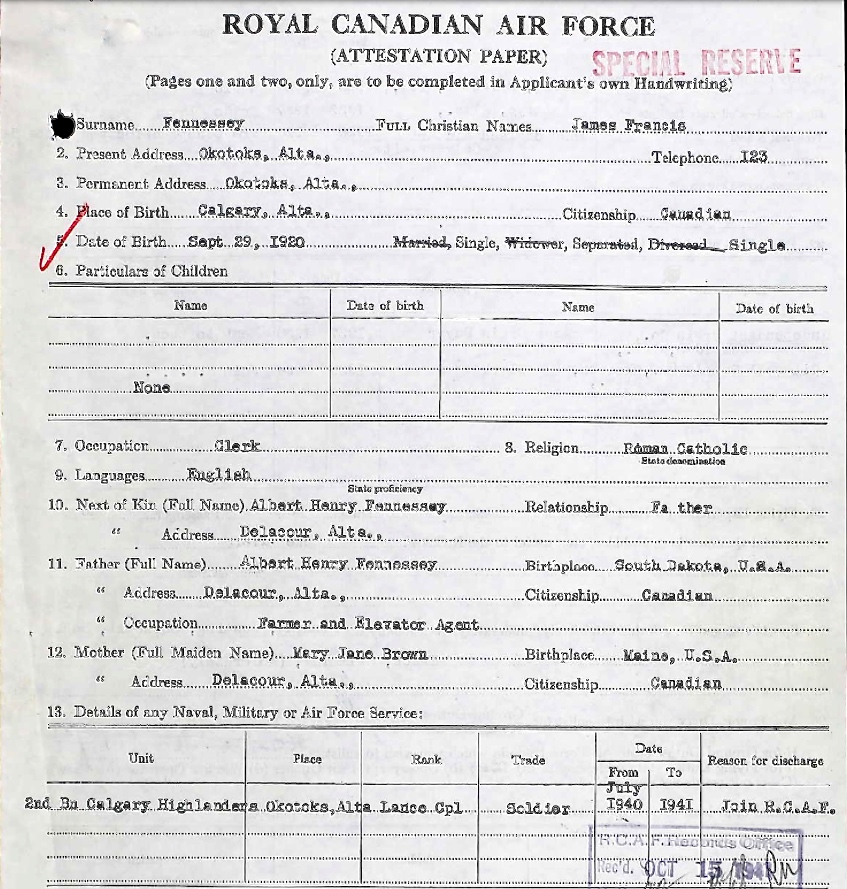 ROYAL CANADIAN AIR FORCE
(ATTESTATION PAPER)
SPECIAL RESERVE
(Pages one and two, only, are to be completed in Applicant's own Handwriting)
Surname Fennessey FULL Christian Names James Francis
2. Present Address Okotoks, Alta., Telephone I23
3. Permanent Address Okotoks, Alta.,
4. Place of Birth Calgary, Alta., Citizenship Canadian
5. Date of Birth Sept. 29, I920 Married, Single, Widower, Separated, Divorced Single
6. Particulars of Children
Name Date of birth Name Date of birth
None
7. Occupation Clerk 8. Religion Roman Catholic
State denomination
9. Languages English
State proficiency
10. Next of Kin (Full Name) Albert Henry Fennessey Relationship Fa ther
" Address Delacour, Alta.,
11. Father (Full Name) Albert Henry Fennessey Birthplace South Dakota, U.S.A.
" Address Delacour, Alta., Citizenship Canadian
" Occupation Farmer and Elevator Agent
12. Mother (Full Maiden Name) Mary Jane Brown Birthplace Maine, U.S.A.
" Address Delacour, Alta., Citizenship Canadian
13. Details of any Naval, Military or Air Force Service:
Unit Place Rank Trade Date Reason for discharge
From To
July
2nd Bn Calgary Highlanders Okotoks, Alta Lance Cpl Soldier I940 I94I Join R.C.A.F.
R.C.A.F. Records Office
Rec'd. OCT 15 194